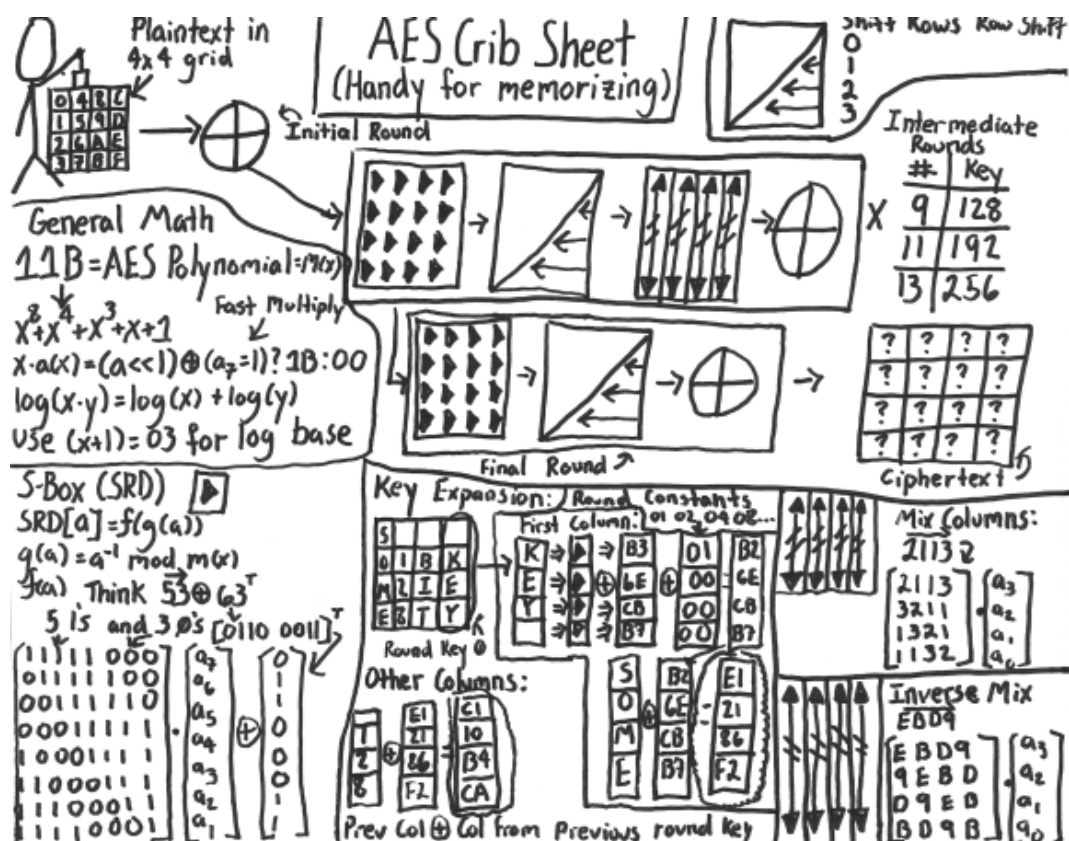 Plaintext in
4x4 grid
0 4 8 C
1 5 9 D
2 6 A E
3 7 B F
Initial Round
AES Crib Sheet
(Handy for memorizing)
Shift Rows Row Shift
0
1
2
3
Intermediate
Rounds
# Key
9 128
11 192
13 256
X
General Math
11B=AES Polynomial=M(x)
x^8+x^4+x^3+x+1
Fast Multiply
x·a(x)=(a<<1)⊕(a7=1)?1B:00
log(x·y)=log(x)+log(y)
Use (x+1)=03 for log base
Final Round
? ? ? ?
? ? ? ?
? ? ? ?
? ? ? ?
Ciphertext
S-Box (SRD)
SRD[a]=f(g(a))
g(a)=a^-1 mod m(x)
f(a) Think 53⊕63^T
5 1's and 3 0's [0110 0011]^T
1 1 1 1 1 0 0 0
0 1 1 1 1 1 0 0
0 0 1 1 1 1 1 0
0 0 0 1 1 1 1 1
1 0 0 0 1 1 1 1
1 1 0 0 0 1 1 1
1 1 1 0 0 0 1 1
1 1 1 1 0 0 0 1
·
a7
a6
a5
a4
a3
a2
a1
⊕
0
1
1
0
0
0
1
Key Expansion:
S
O 1 B K
M 2 I E
E 8 T Y
Round Key 0
Round Constants
01 02 04 08...
First Column:
K ⇒ ⇒ B3 01 B2
E ⇒ ⇒ ⊕ 6E ⊕ 00 = 6E
Y ⇒ ⇒ CB 00 CB
⇒ ⇒ B7 00 B7
S B2 E1
O ⊕ 6E = 21
M CB 86
E B7 F2
Other Columns:
E1 C1
1 ⊕ 21 = 10
2 86 B4
8 F2 CA
Prev Col ⊕ Col from Previous round key
Mix Columns:
2113
2 1 1 3
3 2 1 1
1 3 2 1
1 1 3 2
·
a3
a2
a1
a0
Inverse Mix
EBD9
E B D 9
9 E B D
D 9 E B
B D 9 B
·
a3
a2
a1
a0